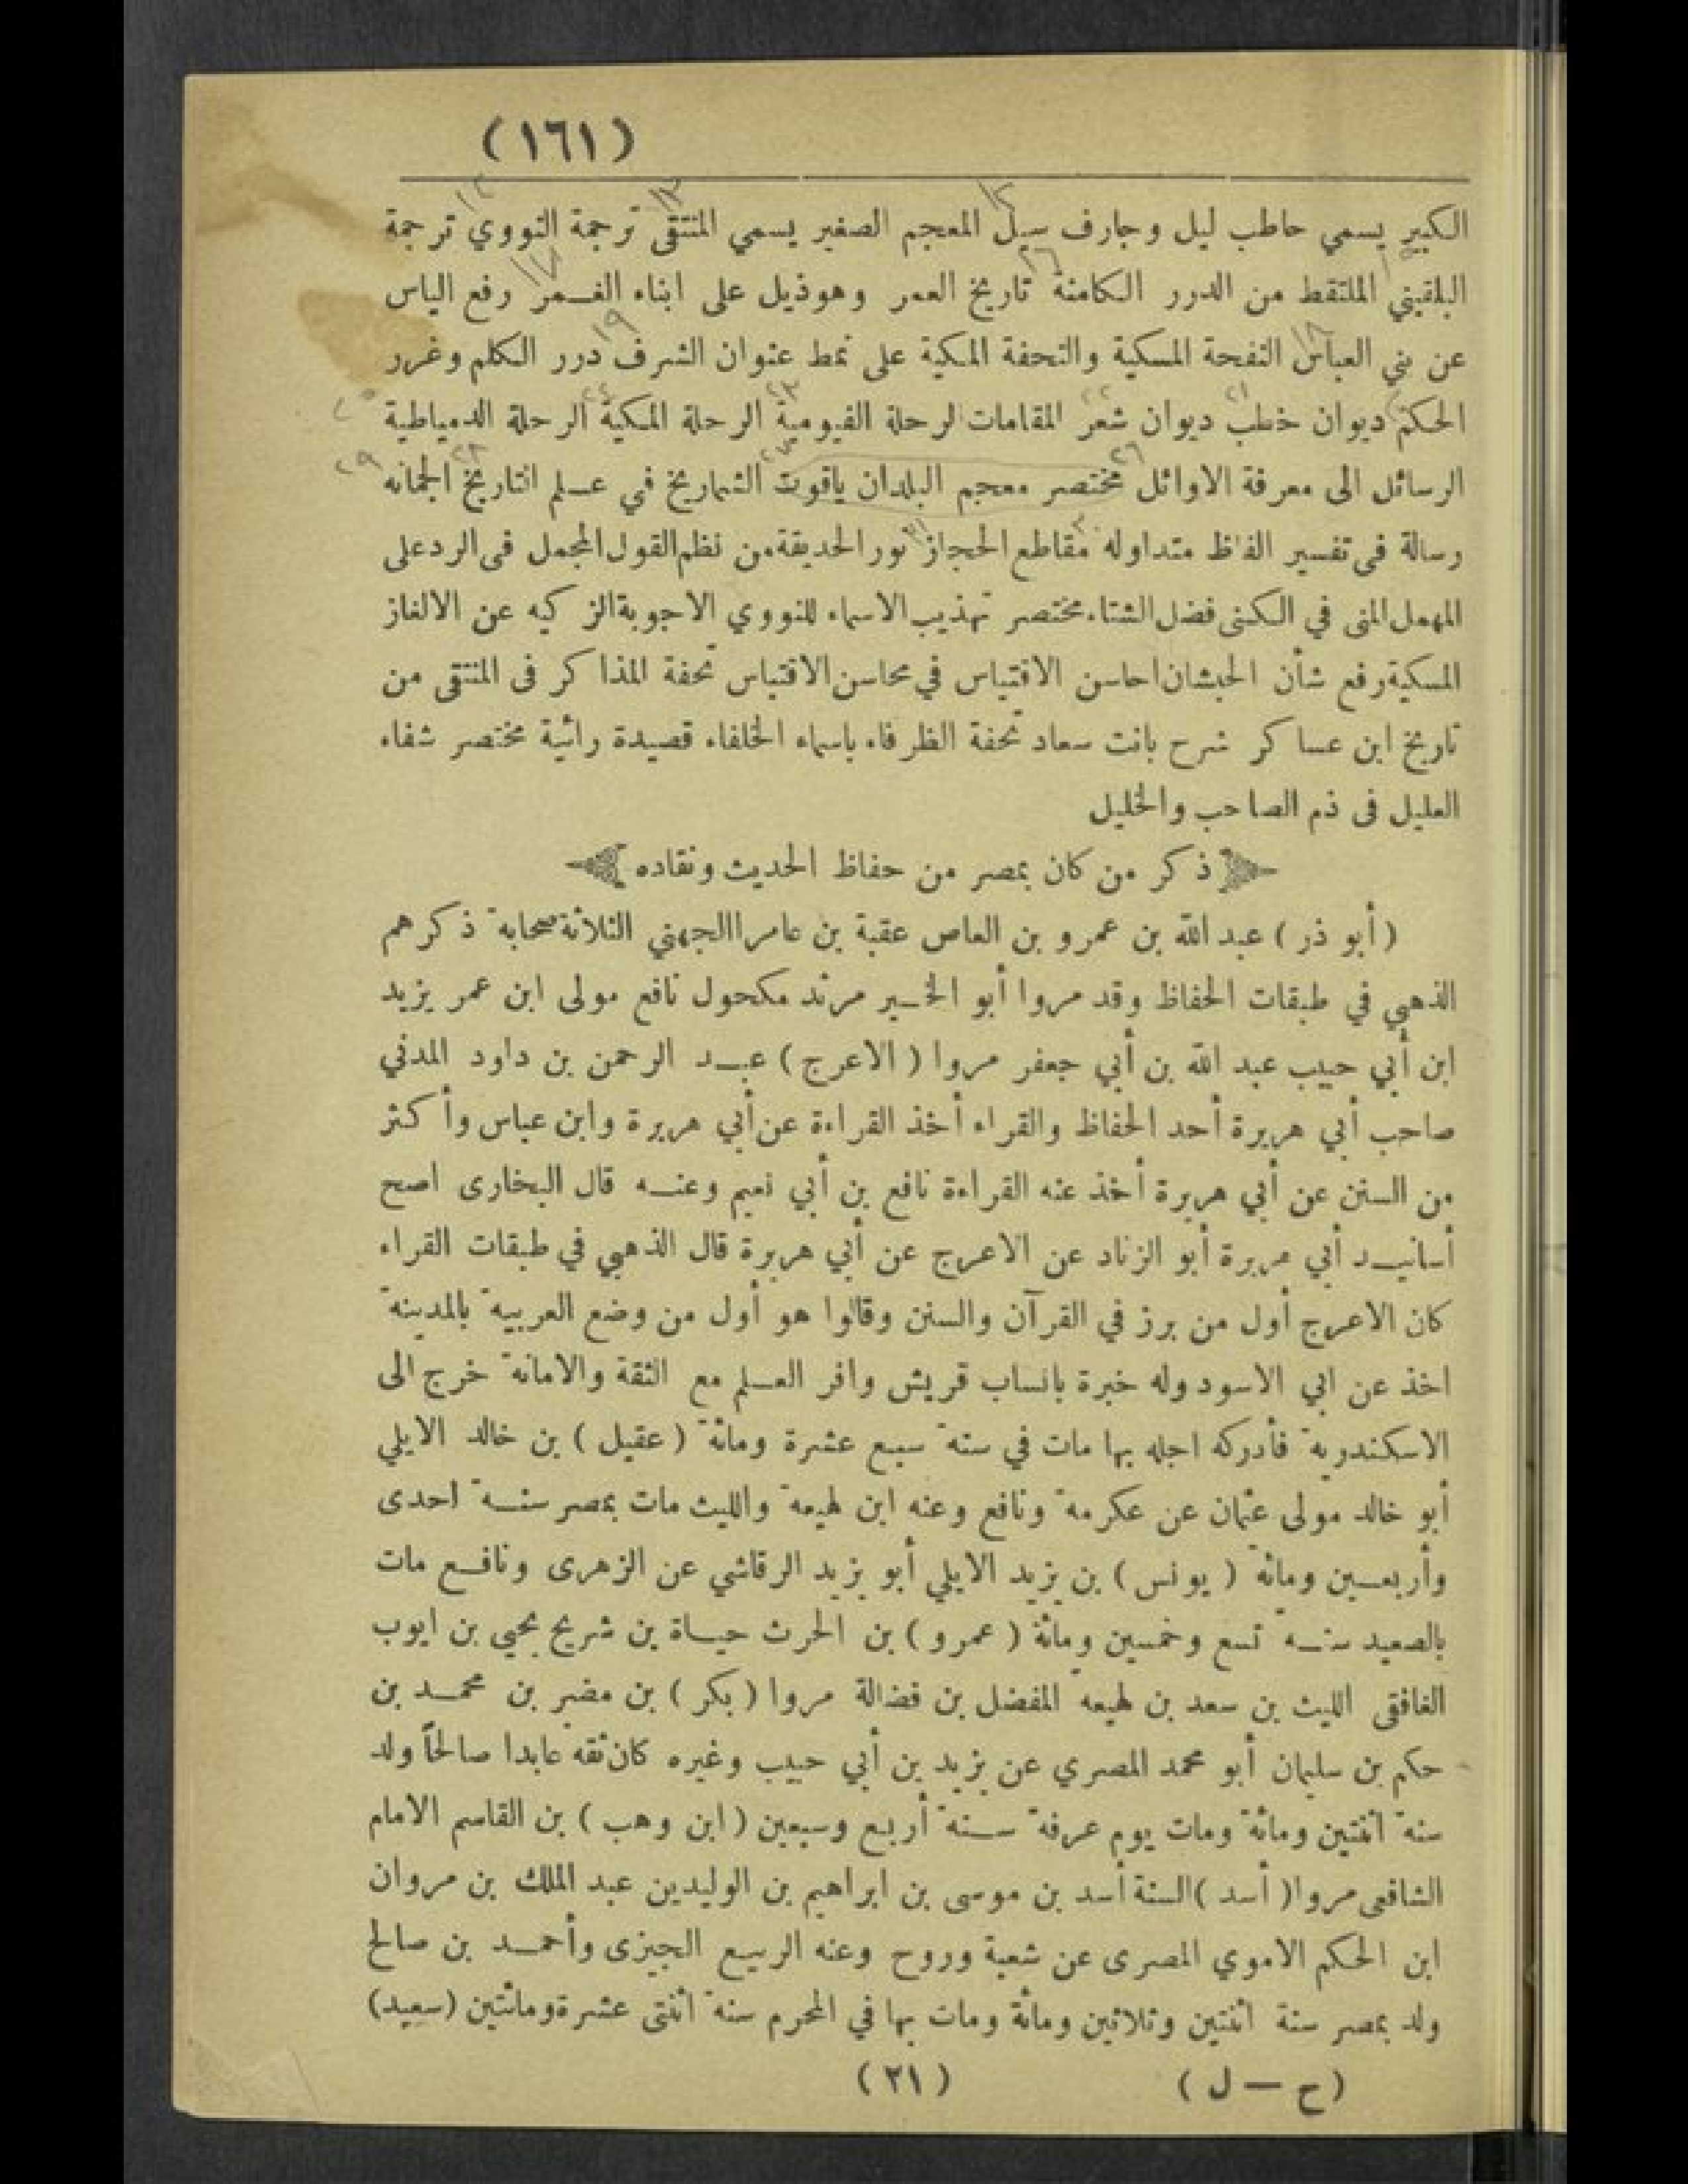 (١٦١)
الكبير يسمي حاطب ليل وجارف سيل المعجم الصغير يسمي المنتقى ترجمة النووي ترجمة
البلقيني الملتقط من الدرر الكامنة تاريخ العمر وهو ذيل على ابناء الغمر رفع الباس
عن بني العباس النفحة المسكية والتحفة المكية على نمط عنوان الشرف درر الكلم وغرر
الحكم ديوان خطب ديوان شعر المقامات لرحلة الفيومية الرحلة المكية الرحلة الدمياطية
الرسائل الى معرفة الاوائل مختصر معجم البلدان ياقوت الشماريخ في علم التاريخ الجمانه
رسالة فى تفسير الفاظ متداوله مقاطع الحجاز نور الحديقة من نظم القول المجمل فى الرد على
المهمل المنى في الكنى فضل الشتاء مختصر تهذيب الاسماء للنووي الاجوبة الزكيه عن الالغاز
السبكية رفع شأن الحبشان احاسن الاقتباس في محاسن الاقتباس تحفة المذاكر فى المنتقى من
تاريخ ابن عساكر شرح بانت سعاد تحفة الظرفاء باسماء الخلفاء قصيدة رائية مختصر شفاء
العليل فى ذم الصاحب والخليل
ذكر من كان بمصر من حفاظ الحديث ونقاده
(أبو ذر) عبد الله بن عمرو بن العاص عقبة بن عامر االجهني الثلاثة صحابة ذكرهم
الذهبي في طبقات الحفاظ وقد مروا أبو الخير مرثد مكحول نافع مولى ابن عمر يزيد
ابن أبي حبيب عبد الله بن أبي جعفر مروا (الاعرج) عبد الرحمن بن داود المدني
صاحب أبي هريرة أحد الحفاظ والقراء أخذ القراءة عن أبي هريرة وابن عباس وأكثر
من السنن عن أبي هريرة أخذ عنه القراءة نافع بن أبي نعيم وعنه قال البخارى اصح
أسانيد أبي هريرة أبو الزناد عن الاعرج عن أبي هريرة قال الذهبي في طبقات القراء
كان الاعرج أول من برز في القرآن والسنن وقالوا هو أول من وضع العربية بالمدينة
اخذ عن ابي الاسود وله خبرة بانساب قريش وافر العلم مع الثقة والامانة خرج الى
الاسكندرية فأدركه اجله بها مات في سنة سبع عشرة ومائة (عقيل) بن خالد الايلي
أبو خالد مولى عثمان عن عكرمة ونافع وعنه ابن لهيعة والليث مات بمصر سنة احدى
وأربعين ومائة (يونس) بن يزيد الايلي أبو يزيد الرقاشي عن الزهرى ونافع مات
بالصعيد سنة تسع وخمسين ومائة (عمرو) بن الحرث حياة بن شريح يحيى بن ايوب
الغافقى الليث بن سعد بن لهيعة المفضل بن فضالة مروا (بكر) بن مضر بن محمد بن
حكم بن سليمان أبو محمد المصري عن يزيد بن أبي حبيب وغيره كان ثقه عابدا صالحاً ولد
سنة اثنتين ومائة ومات يوم عرفة سنة أربع وسبعين (ابن وهب) بن القاسم الامام
الشافعى مروا (أسد) السنة أسد بن موسى بن ابراهيم بن الوليد بن عبد الملك بن مروان
ابن الحكم الاموي المصرى عن شعبة وروح وعنه الربيع الجيزى وأحمد بن صالح
ولد بمصر سنة اثنتين وثلاثين ومائة ومات بها في المحرم سنة اثنتى عشرة ومائتين (سعيد)
(ح — ل) (٢١)